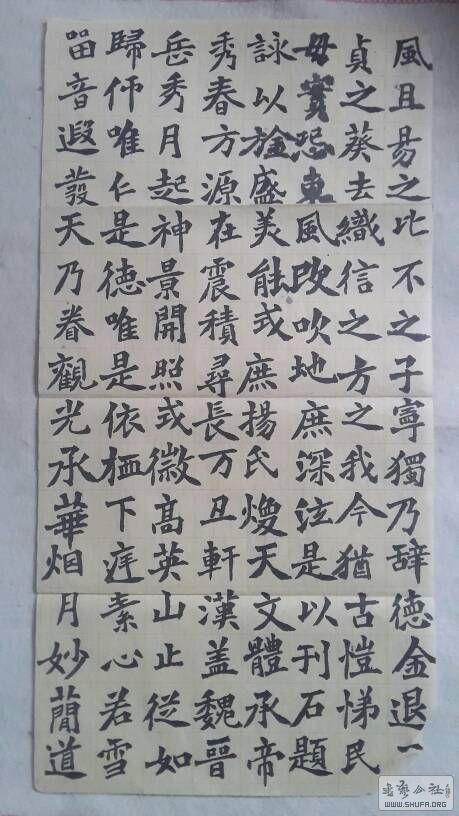 風且易之比不之子寧獨乃辭德金退一
貞之葵去織信之方之我今猶古愷悌民
母實忌東風改吹地庶深泫是以刊石題
詠以旌盛美能或庶揚氏煥天文體承帝
秀春方源在震積尋長万丑軒漢盖魏晉
岳秀月起神景開照或微高英山止從如
歸仰唯仁是德唯是依栖下庠素心若雪
留音遐發天乃眷觀光承華烟月妙蕳道
书艺公社
WWW.SHUFA.ORG